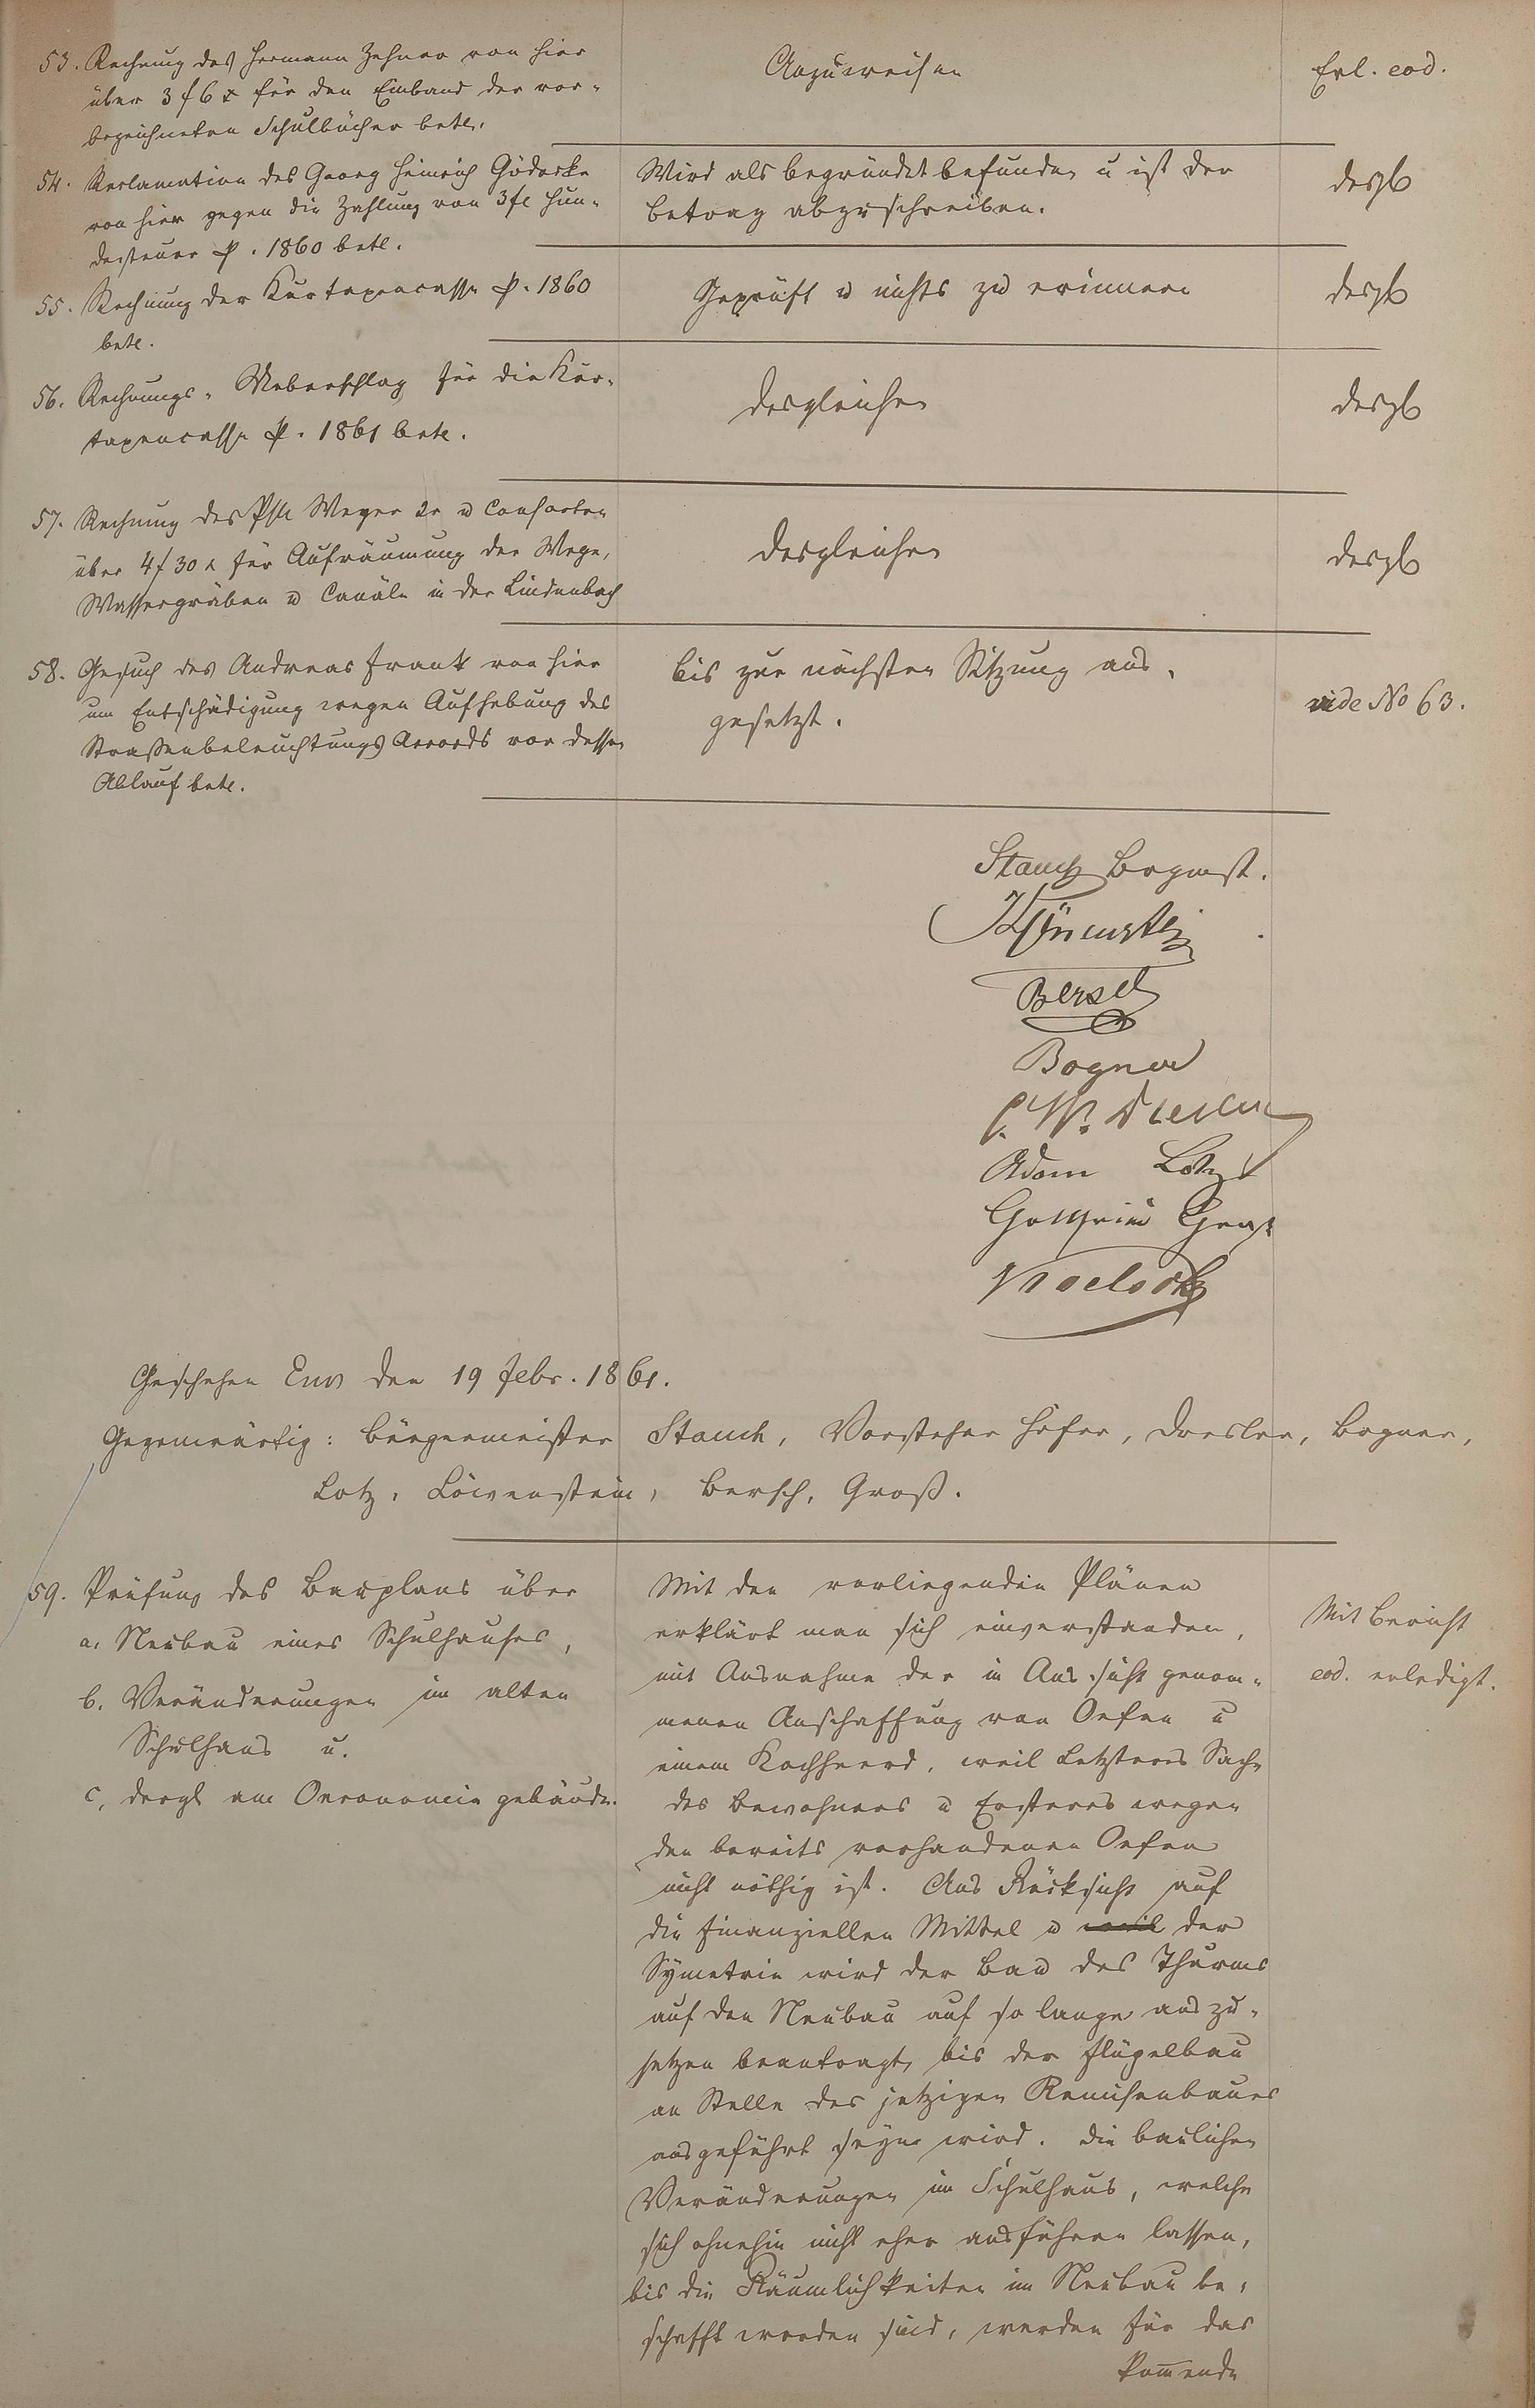 53. Rechnung des Hermann Zehner von hier
über 3 f 6 x für den Einband der vor-
bezeichneten Schulbücher betr.
Anzuweisen
Erl. eod.
54. Reclamation des Georg Heinrich Gödecke
von hier gegen die Zahlung von 3 fl Hun-
desteuer p. 1860 betr.
Wird als begründet befunden u ist der
Betrag abzuschreiben.
desgl
55. Rechnung der Kurtaxencasse p. 1860
betr.
Geprüft u nichts zu erinnern
desgl
56. Rechnungs-Ueberschlag für die Kur-
taxencasse p. 1861 betr.
desgleichen
desgl
57. Rechnung des Weyer 2r u Consorten
über 4 f 30 x für Aufräumung der Wege,
Wassergräben u Canäle in der Lindenbach
desgleichen
desgl
58. Gesuch des Andreas Frank von hier
um Entschädigung wegen Aufhebung des
Straßenbeleuchtungs Accords vor dessen
Ablauf betr.
bis zur nächsten Sitzung aus-
gesetzt.
vide No 63.
Stauch Bogmst.
Löwenstein
Bersch
Bogner
Adam Lotz
Groß
Geschehen Ems den 19 Febr. 1861.
Gegenwärtig: Bürgermeister Stauch, Vorsteher Höfer, Dresler, Bogner,
Lotz, Löwenstein, Bersch, Groß.
59. Prüfung des Bauplans über
a. Neubau eines Schulhauses,
b. Veränderungen im alten
Schulhaus u.
c, dergl am Oeconomie gebäude.
Mit den vorliegenden Plänen
erklärt man sich einverstanden,
mit Ausnahme der in Aussicht genom-
menen Anschaffung von Oefen u
einem Kochheerd, weil Letzteres Sache
des Bewohners u Ersteres wegen
den bereits vorhandenen Oefen
nicht nöthig ist. Aus Rücksicht auf
die finanziellen Mittel u weil der
Symetrie wird der Bau des Thurms
auf den Neubau auf so lange auszu-
setzen beantragt, bis der Flügelbau
an Stelle des jetzigen Remisenbaues
ausgeführt seyn wird. Die baulichen
Veränderungen im Schulhaus, welche
sich ohnehin nicht eher ausführen lassen,
bis die Räumlichkeiten im Neubau be-
schafft worden sind, werden für das
kom̅ende
Mit Bericht
eod. erledigt.